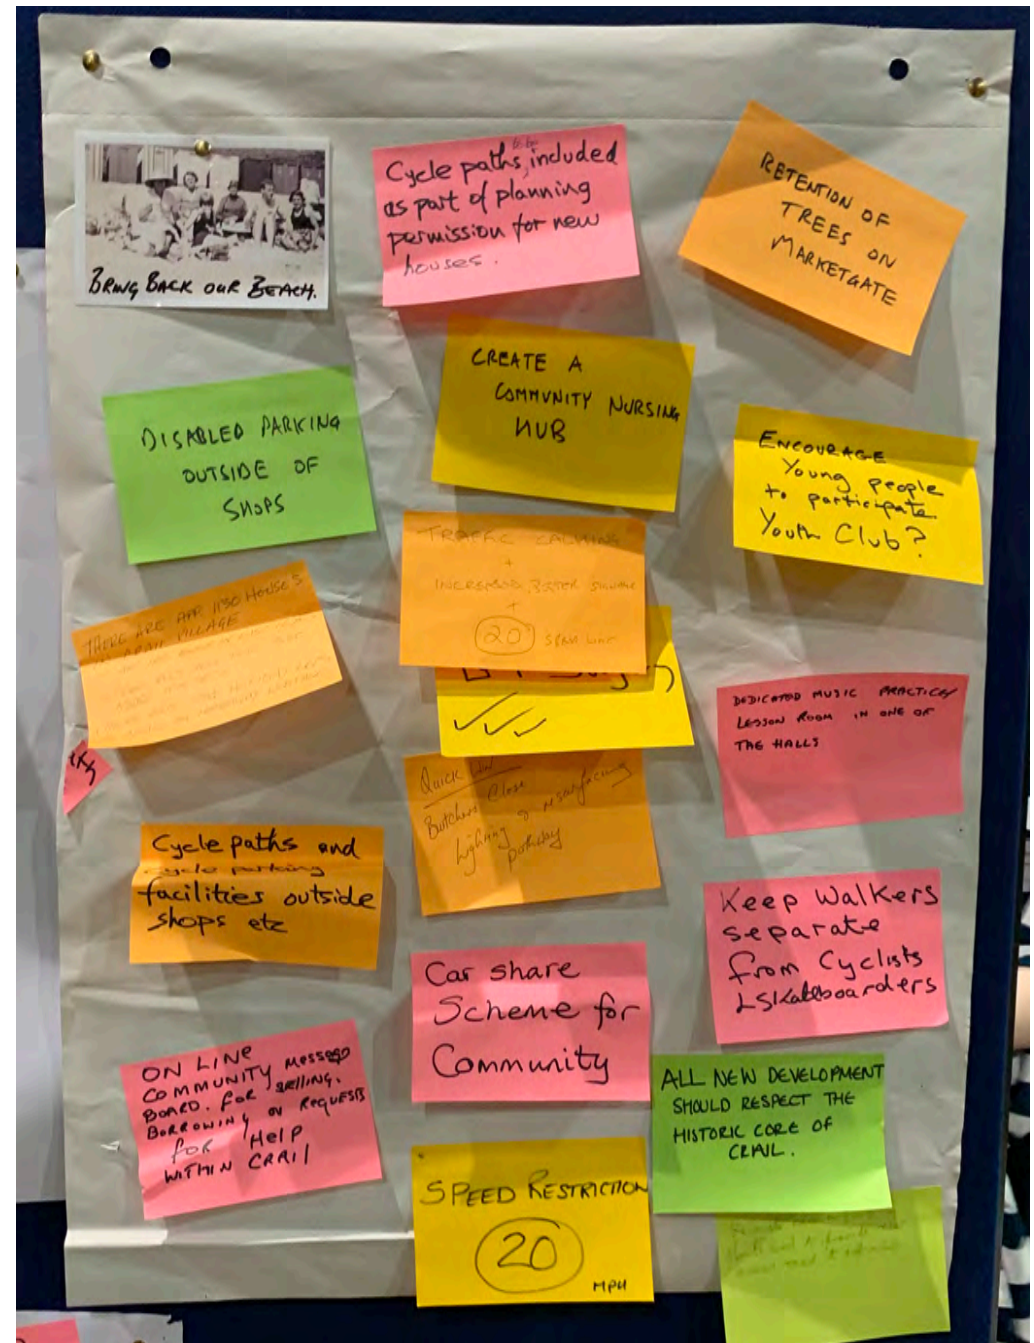 BRING BACK OUR BEACH.
Cycle paths to be included
as part of planning
permission for new
houses.
RETENTION OF
TREES ON
MARKETGATE
DISABLED PARKING
OUTSIDE OF
SHOPS
CREATE A
COMMUNITY NURSING
HUB
ENCOURAGE
Young people
to participate
Youth Club?
THERE ARE APP 1130 HOUSE'S
IN CRAIL VILLAGE
TRAFFIC CALMING
+
INCREASED, BETTER SIGNAGE
+
20 SPEED LIMIT
DEDICATED MUSIC PRACTICE/
LESSON ROOM IN ONE OF
THE HALLS
Quick
Butchers Close
lighting & resurfacing
pathway
Cycle paths and
cycle parking
facilities outside
shops etc
Keep Walkers
separate
from Cyclists
& Skateboarders
Car share
Scheme for
Community
ON LINE
COMMUNITY MESSAGE
BOARD. FOR SELLING.
BORROWING OR REQUESTS
FOR HELP
WITHIN CRAIL
ALL NEW DEVELOPMENT
SHOULD RESPECT THE
HISTORIC CORE OF
CRAIL.
SPEED RESTRICTION
20
MPH